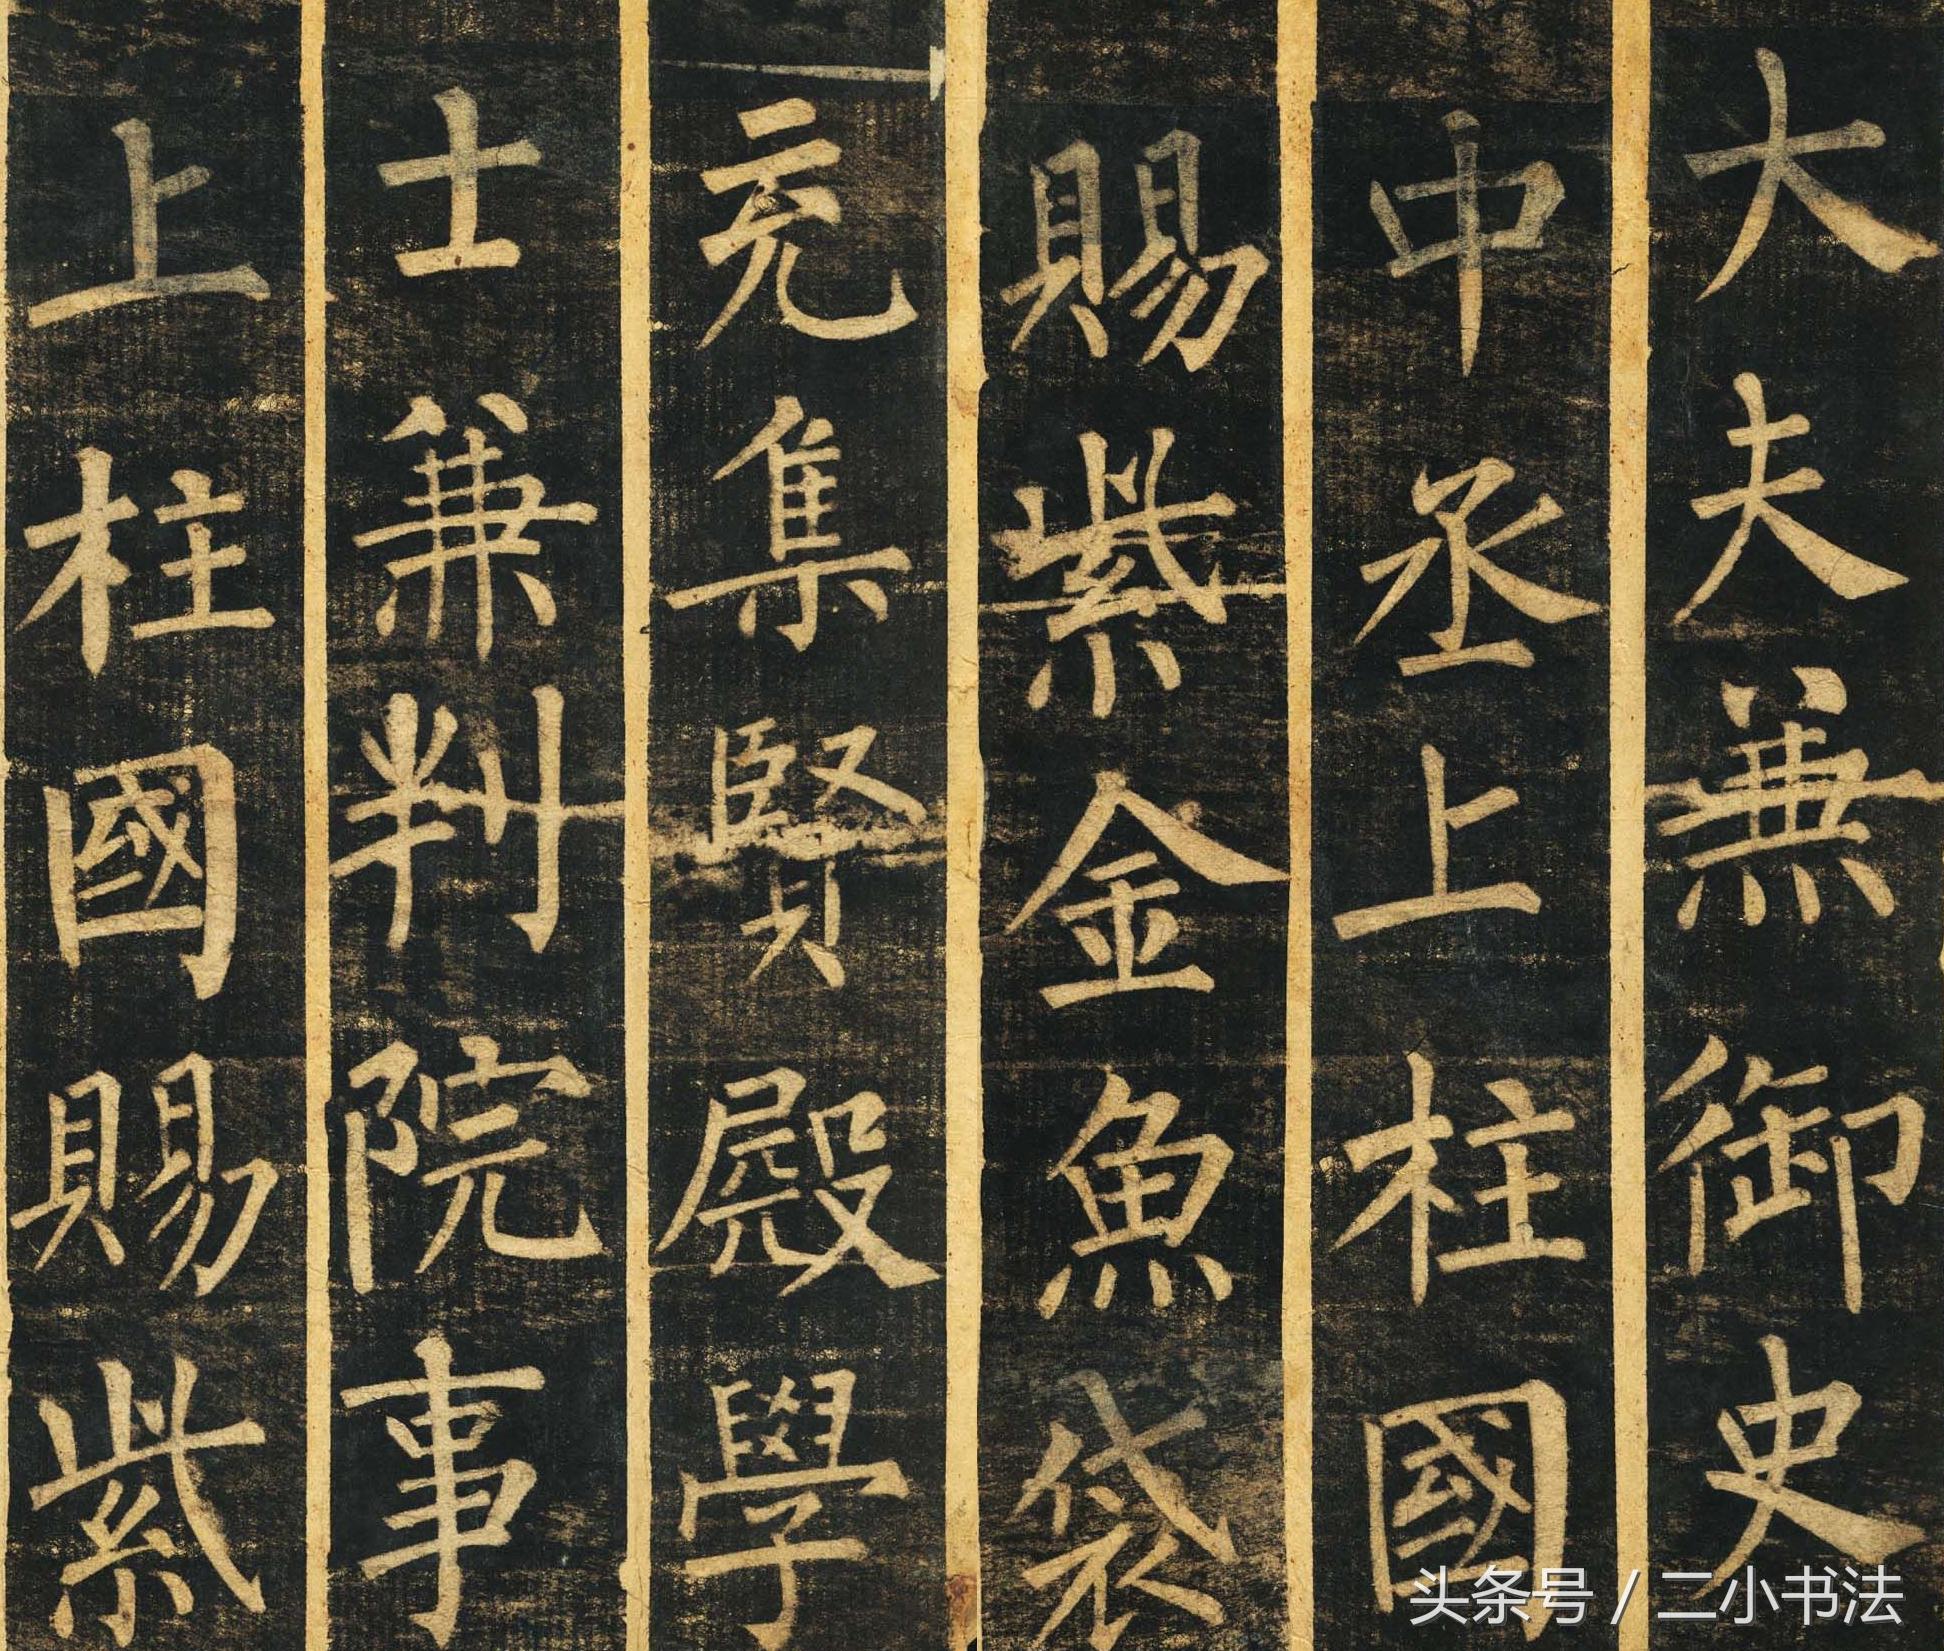 大夫兼御史
中丞上柱國
賜紫金魚袋
充集賢殿學
士兼判院事
上柱國賜紫
头条号 / 二小书法